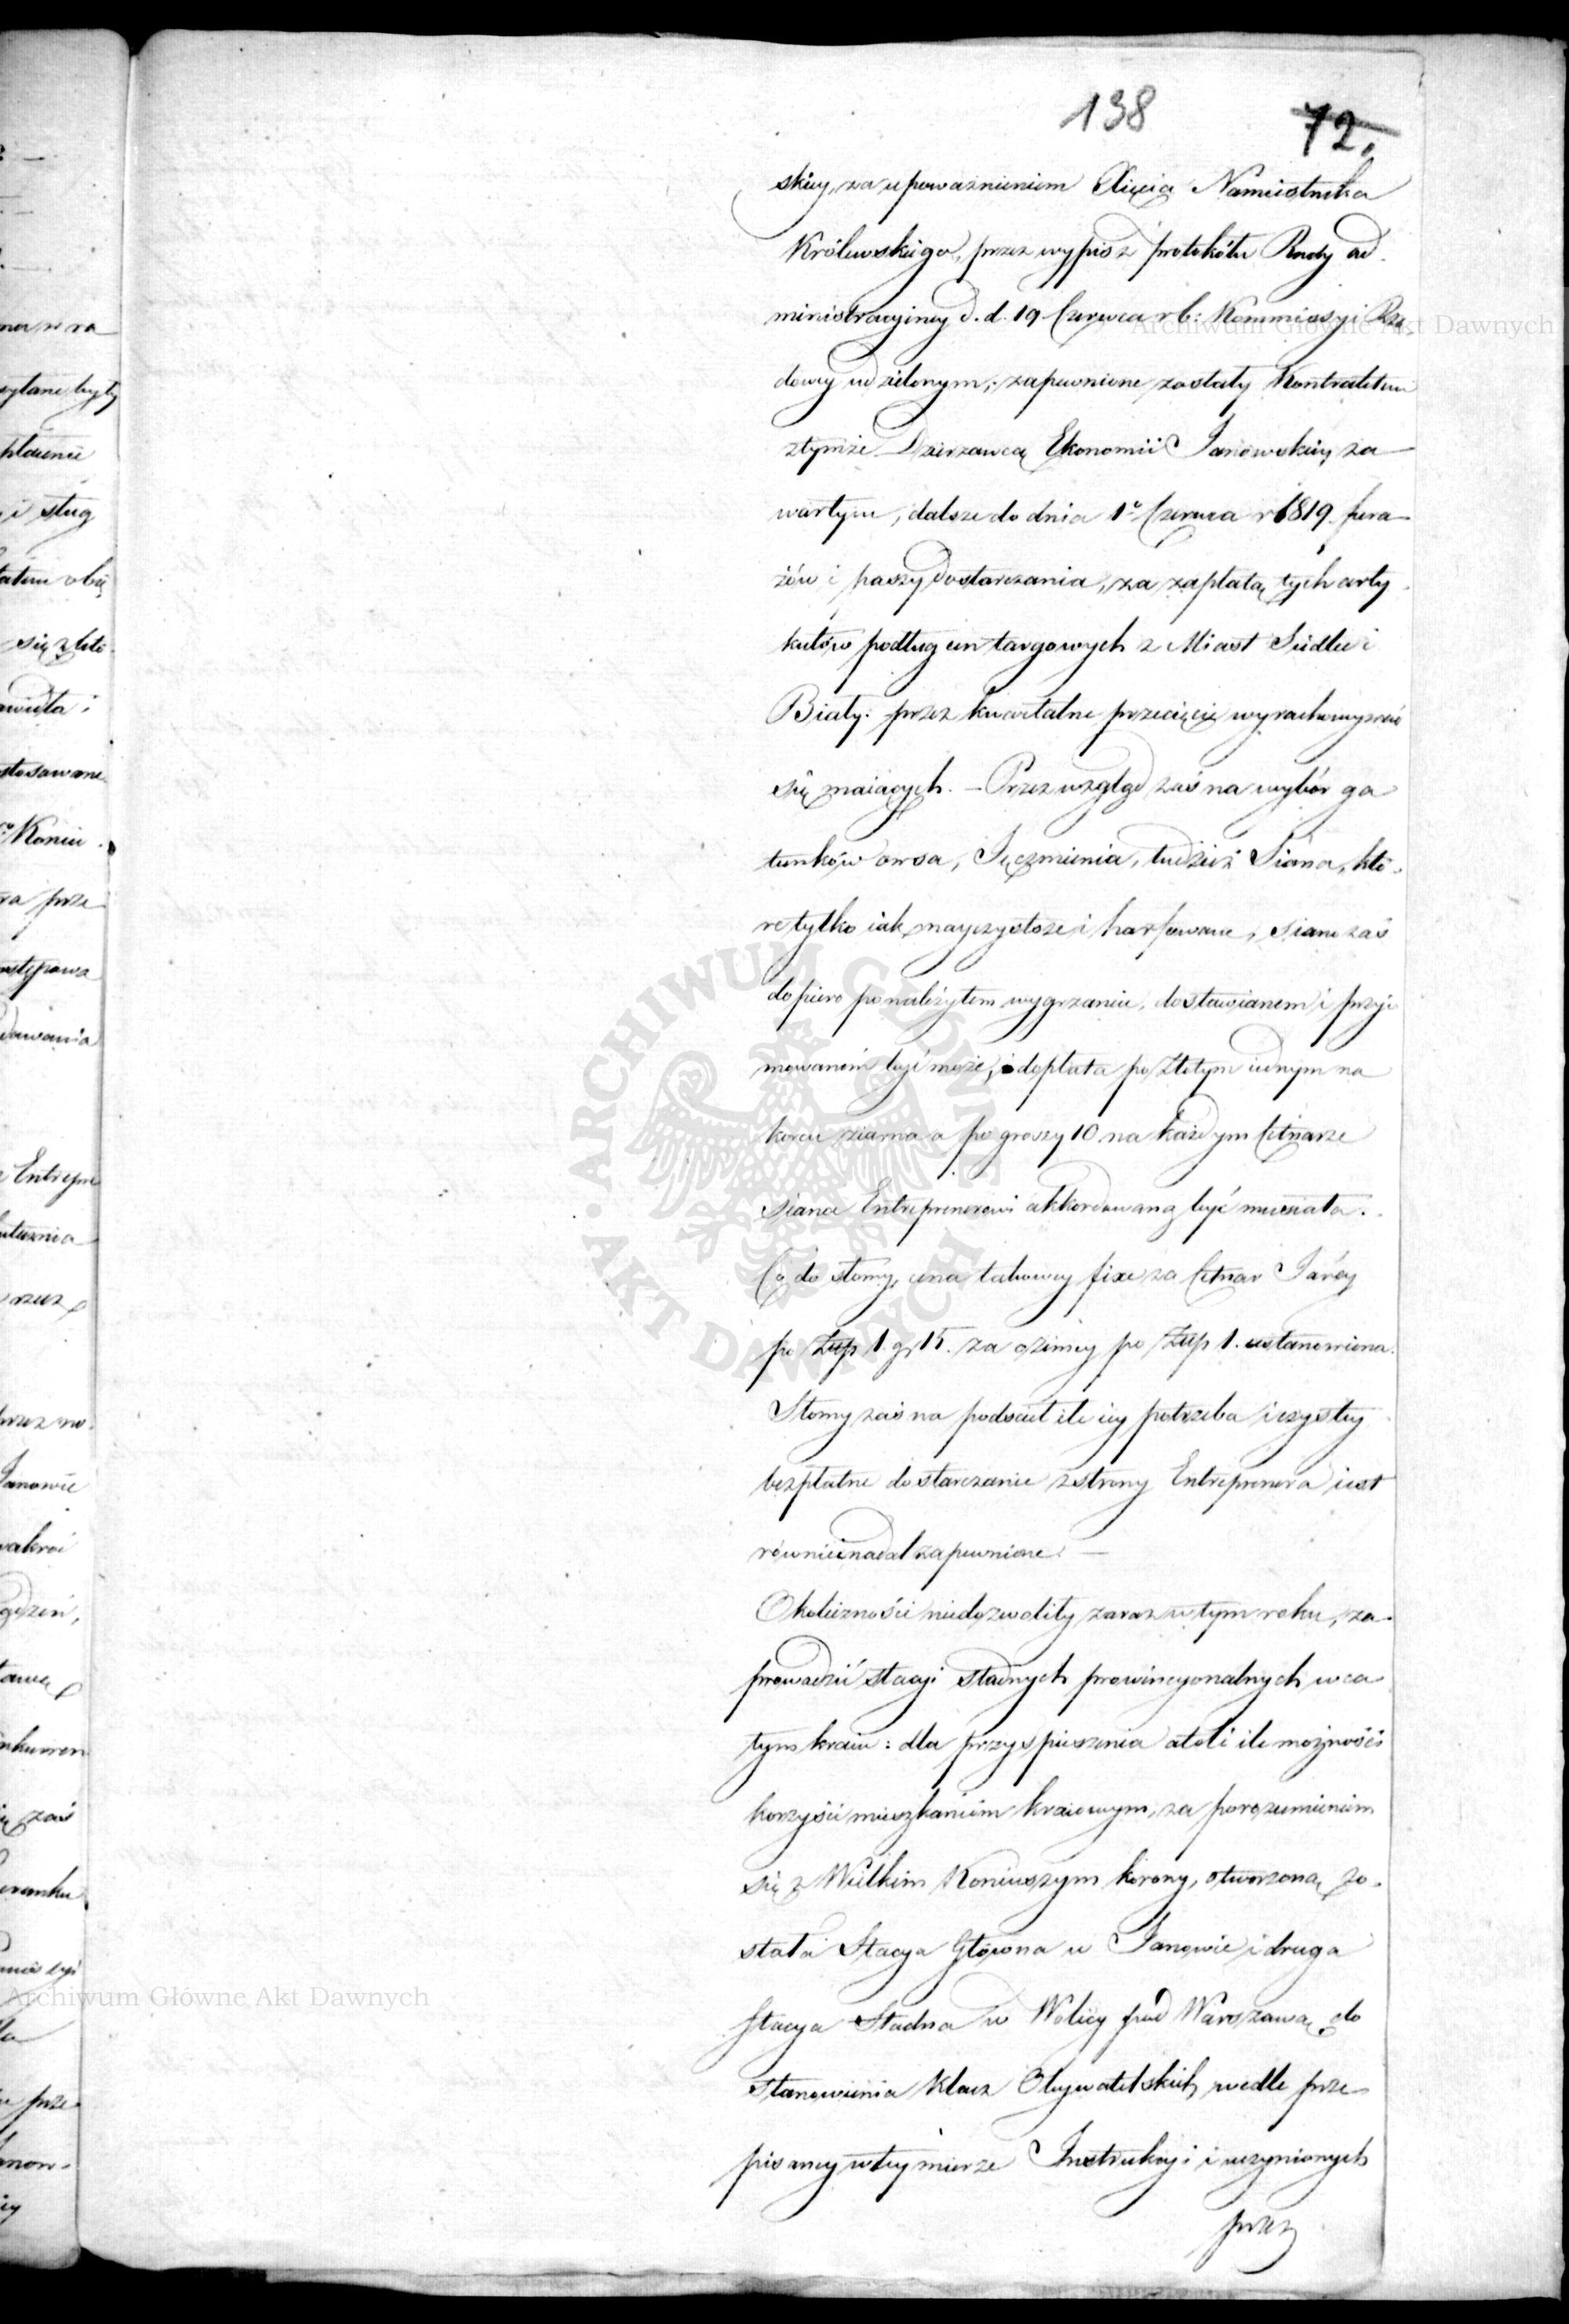 138 72.
skiey, za upoważnieniem Xięcia Namiestnika
Królewskiego, przez wypis z protokółu Rady ad-
ministracyiney d. d. 19 Czerwca r b: Kommissyi Rzą-
dowey udzielonym; zapewnione zostały Kontraktem
z tymże Dzierzawcą Ekonomii Janowskiey za-
wartym, dalsze do dnia 1o Czerwca r 1819. fura-
żów i paszy dostarczania, za zapłatą tych arty-
kułów podług cen targowych z Miast Siedlec i
Biały: przez kwartalne przecięcie wyrachowywać
się maiących. – Przez wzgląd zaś na wybór ga
tunków owsa, Jęczmienia, tudzież Siana, któ-
re tylko iak nayczystsze i harfowane, siano zaś
dopiero po należytem wygrzaniu, dostawianem i przyi
mowanem być może, dopłata po Złotym iednym na
korcu ziarna a po groszy 10 na każdym Cetnarze
siana Entreprenerowi akkordowaną być musiała.
Co do słomy, cena takowey fixe za Cetnar Jarey
po Złłp 1. gr 15. za ozimey po Złłp 1. ustanowiona.
Słomy zaś na podściel ile iey potrzeba i czystey
bezpłatne dostarczanie z strony Entreprenera iest
również nadal zapewnione. —
Okoliczności niedozwoliły zaraz w tym roku, za-
prowadzić stacyi stadnych prowincyonalnych w ca
łym kraiu: dla przyspieszenia atoli ile możności
korzyści mieszkańcom kraiowym, za porozumieniem
się z Wielkim Koniuszym korony, otworzoną zo-
stała Stacya Główna w Janowie i druga
Stacya Stadna w Wolicy pod Warszawą do
stanowienia Klacz Obywatelskich, wedle prze-
pisaney w tey mierze Instrukcyi i uczynionych
przez
Archiwum Główne Akt Dawnych
Archiwum Główne Akt Dawnych
· ARCHIWUM GŁÓWNE · AKT DAWNYCH